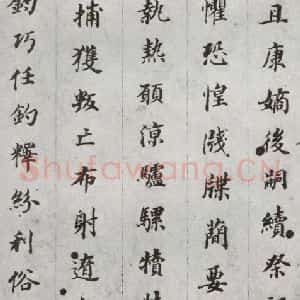 且康嫡後嗣續祭
懼恐惶牋牒簡要
執熱願涼驢騾犢
捕獲叛亡布射遼
鈞巧任釣釋紛利俗
Shufawang.CN